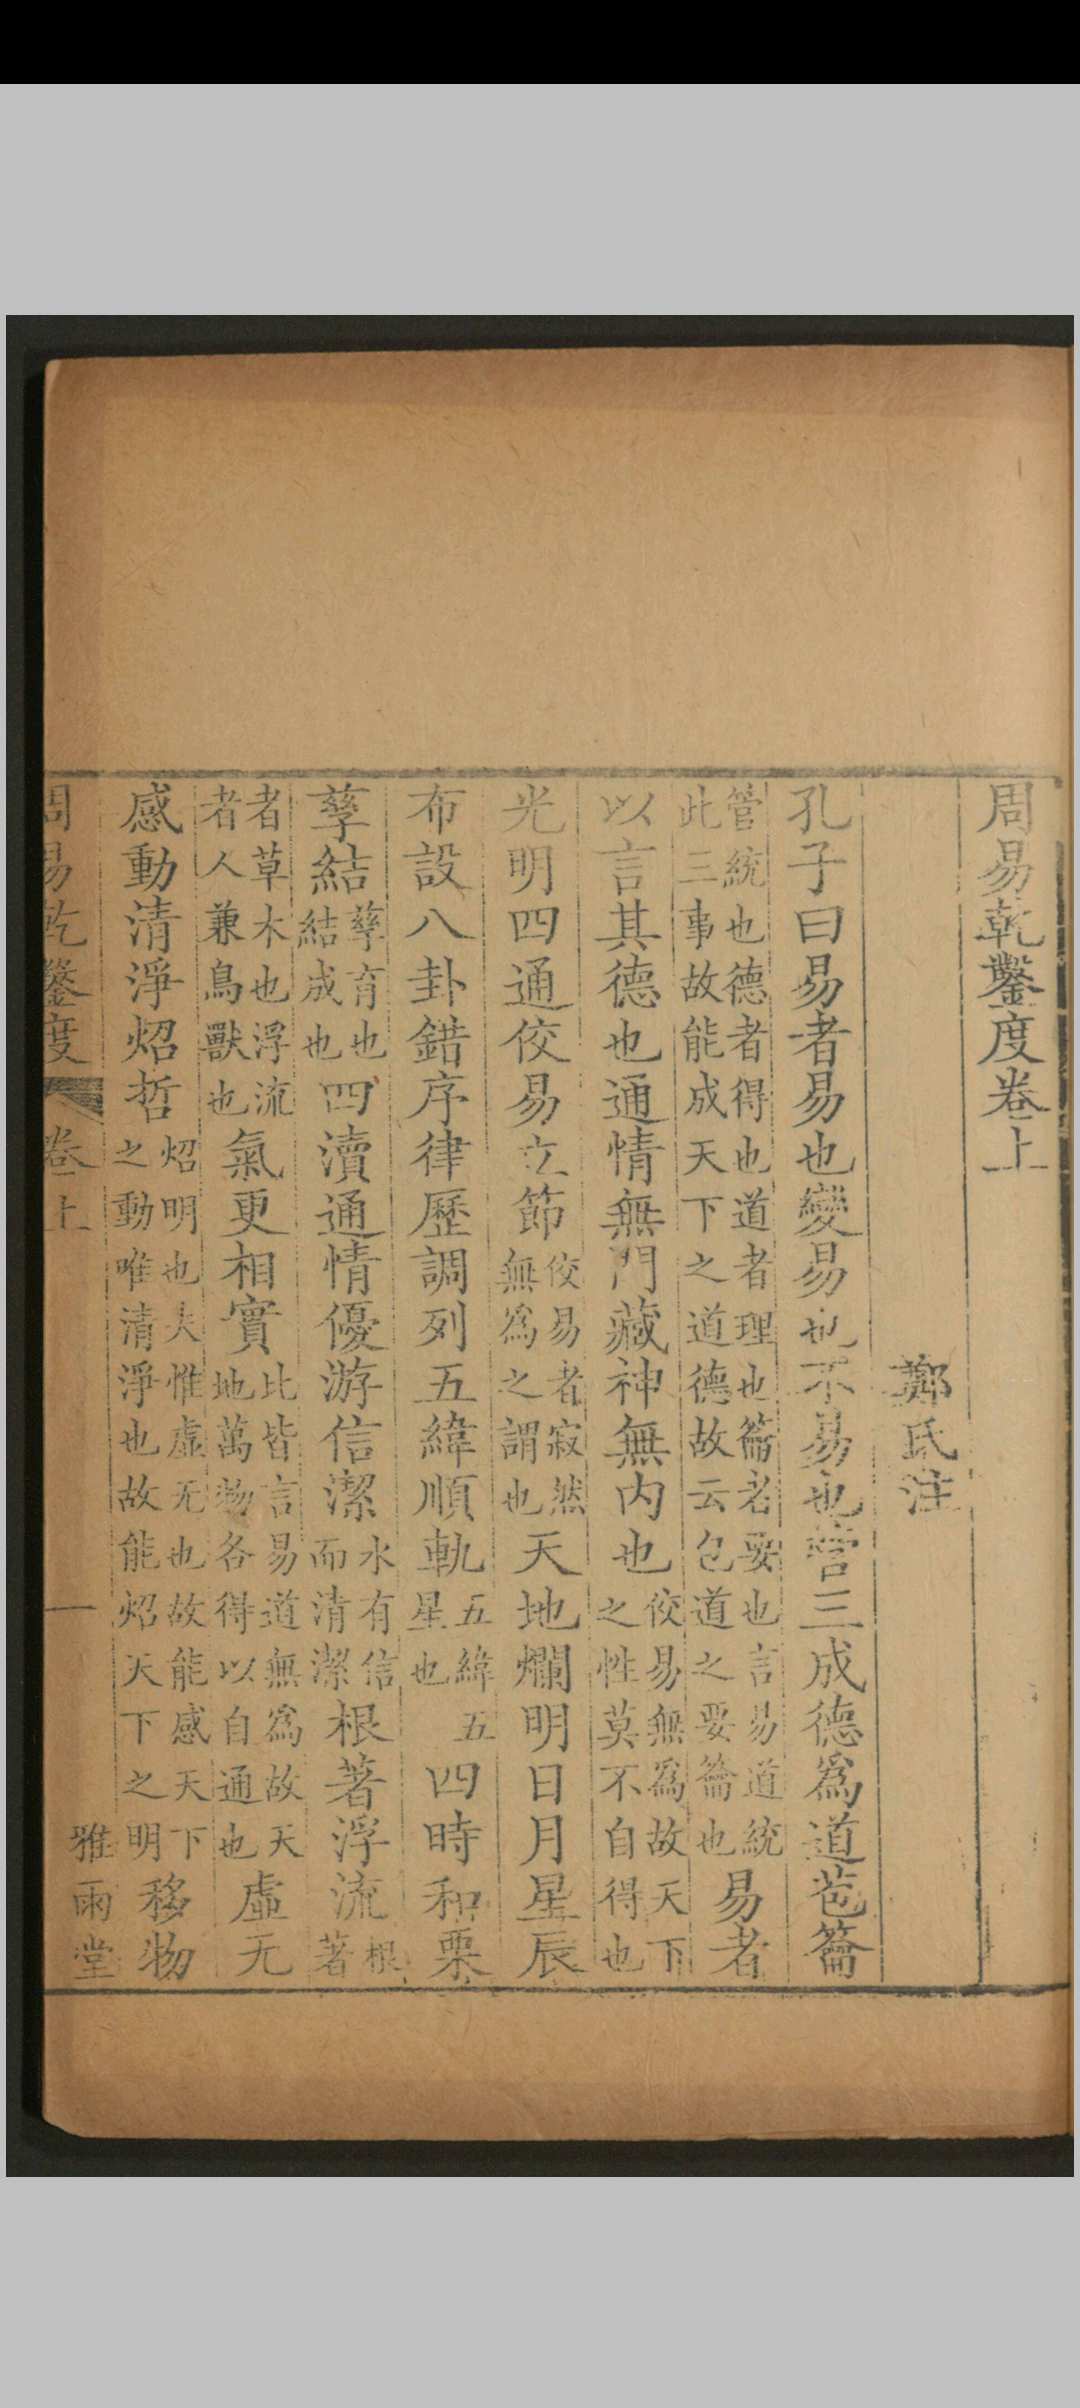 周易乾鑿度卷上
鄭氏注
孔子曰易者易也變易也不易也管三成德爲道苞籥
管統也德者得也道者理也籥者要也言易道統
此三事故能成天下之道德故云包道之要籥也
易者
以言其德也通情無門藏神無内也
佼易無爲故天下
之性莫不自得也
光明四通佼易立節
佼易者寂然
無爲之謂也
天地爛明日月星辰
布設八卦錯序律歷調列五緯順軌
五緯五
星也
四時和栗
孳結
孳育也
結成也
四瀆通情優游信潔
水有信
而清潔
根著浮流
根
著
者草木也浮流
者人兼鳥獸也
氣更相實
比皆言易道無爲故天
地萬物各得以自通也
虛无
感動清淨炤哲
炤明也夫惟虛无也故能感天下
之動唯清淨也故能炤天下之明
移物
周易乾鑿度
卷上
一
雅雨堂